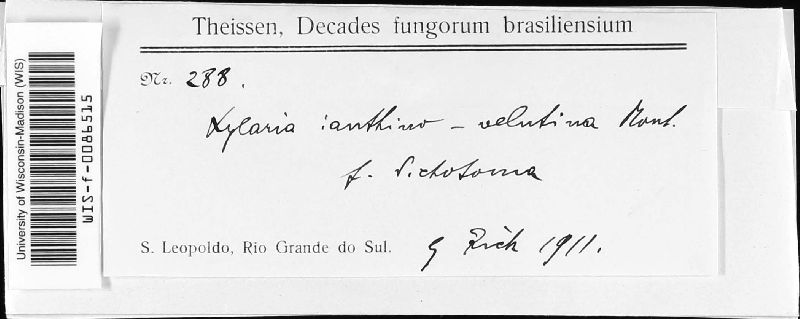 Theissen, Decades fungorum brasiliensium
Nr. 288.
Xylaria ianthino-velutina Mont.
f. dichotoma
S. Leopoldo, Rio Grande do Sul. Rick 1911.
University of Wisconsin-Madison (WIS)
WIS-f-0086515